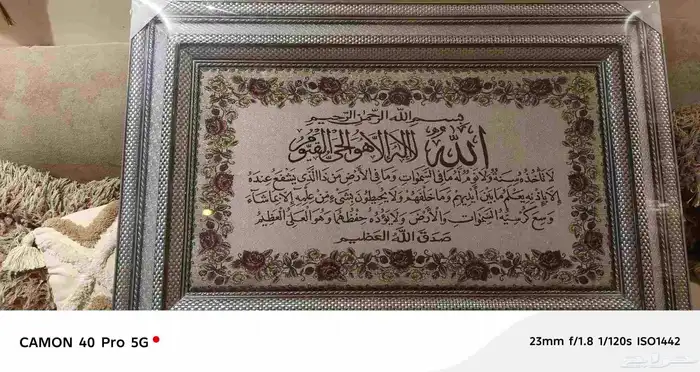 بسم الله الرحمن الرحيم
الله لا إله إلا هو الحي القيوم
لا تأخذه سنة ولا نوم له ما في السموات وما في الأرض من ذا الذي يشفع عنده
إلا بإذنه يعلم ما بين أيديهم وما خلفهم ولا يحيطون بشيء من علمه إلا بما شاء
وسع كرسيه السموات والأرض ولا يؤده حفظهما وهو العلي العظيم
صدق الله العظيم
CAMON 40 Pro 5G
23mm f/1.8 1/120s ISO1442
حراج